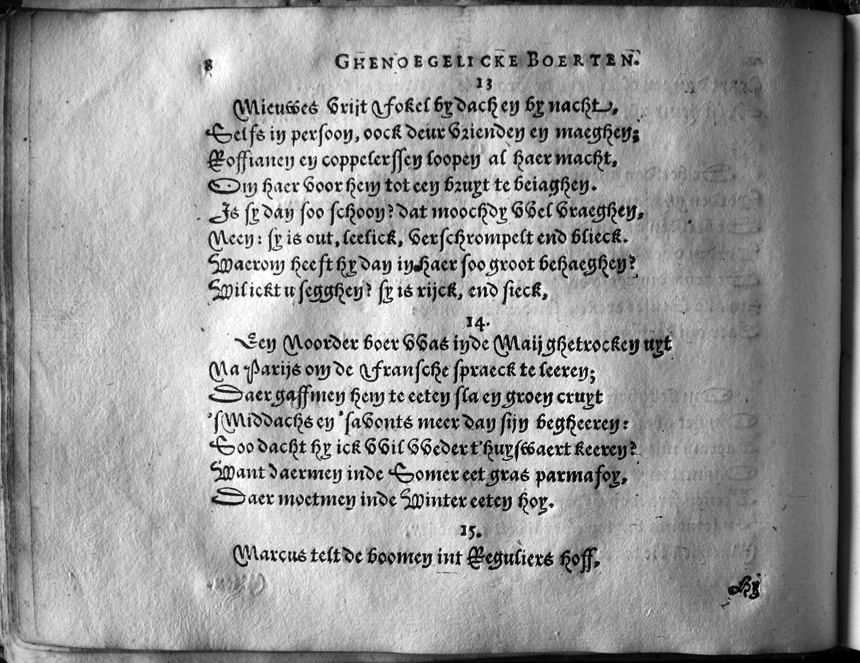 8 GHENOEGELICKE BOERTEN.
13
Mieuwes vrijt Fokel by dach en by nacht,
Selfs in persoon, oock deur vrienden en maeghen;
Roffianen en coppelerssen loopen al haer macht,
Om haer voor hem tot een bruyt te beiaghen.
Is sy dan soo schoon? dat moochdy vvel vraeghen,
Neen: sy is out, leelick, verschrompelt end blieck.
Waerom heeft hy dan in haer soo groot behaeghen?
Wil ickt u segghen? sy is rijck, end sieck,
14.
Een Noorder boer vvas inde Maij ghetrocken uyt
Na Parijs om de Fransche spraeck te leeren;
Daer gaffmen hem te eeten sla en groen cruyt
'sMiddachs en 'savonts meer dan sijn begheeren:
Soo dacht hy ick vvil vveder t'huyswaert keeren?
Want daermen inde Somer eet gras parmafoy,
Daer moetmen inde Winter eeten hoy.
15.
Marcus telt de boomen int Reguliers hoff,
Hy